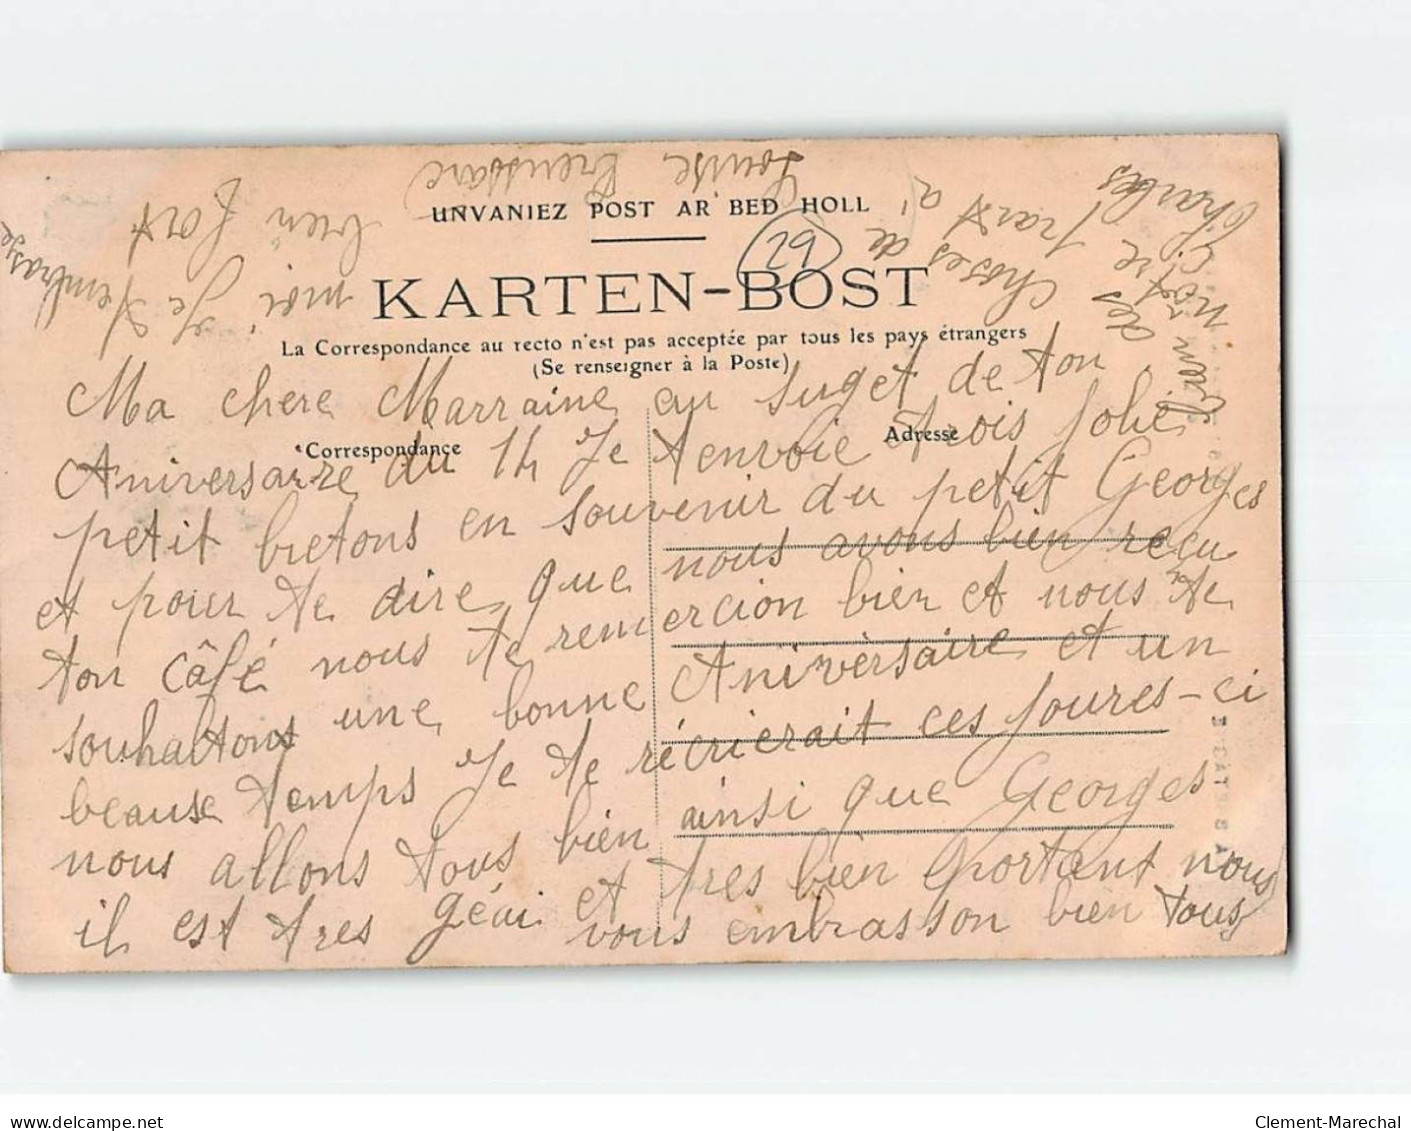 UNVANIEZ POST AR BED HOLL
29
KARTEN-BOST
La Correspondance au recto n'est pas acceptée par tous les pays étrangers
(Se renseigner à la Poste)
Correspondance
Adresse
Ma chere Marraine au suget de ton
Aniversaire du 14 Je t'envoie trois jolie
petit bretons en souvenir du petit Georges
et pour te dire que nous avons bien reçu
ton câfé nous te remercion bien et nous te
souhaitons une bonne Aniversaire et un
beause temps Je te récrierait ces joures-ci
nous allons tous bien ainsi que Georges
il est tres géai et tres bien portant nous
vous embrasson bien tous
des
choses de
trait a
notre
Charles
moi Je t'embrasse
bien fort
Louise
Clement-Marechal
delcampe.net